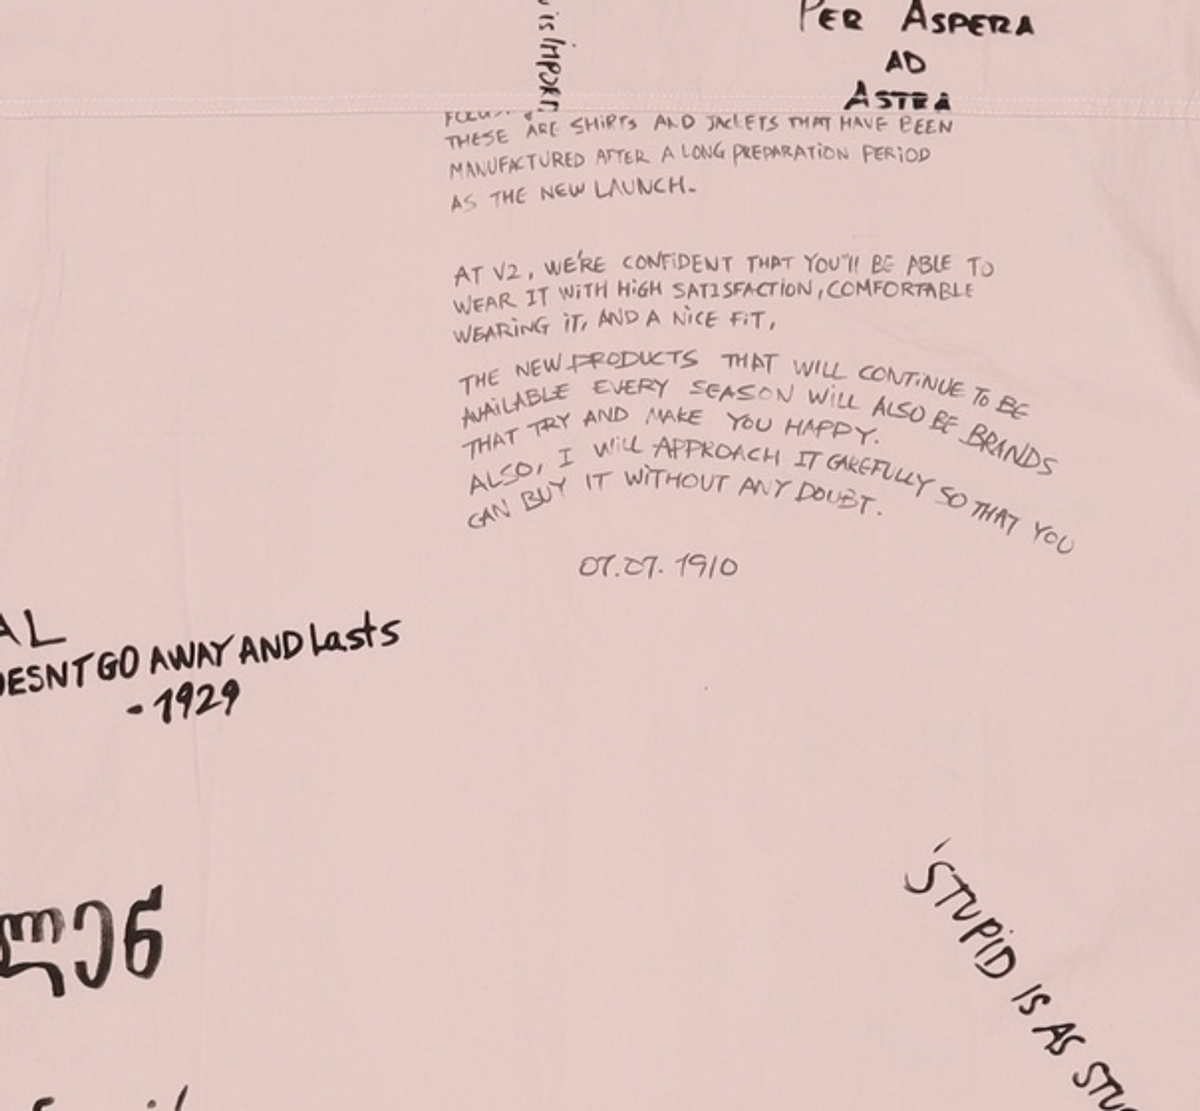 is IMPORT
PER ASPERA
AD
ASTRA
THESE ARE SHIRTS AND JACKETS THAT HAVE BEEN
MANUFACTURED AFTER A LONG PREPARATION PERIOD
AS THE NEW LAUNCH.
AT V2, WE'RE CONFIDENT THAT YOU'll BE ABLE TO
WEAR IT WITH HIGH SATISFACTION, COMFORTABLE
WEARING IT, AND A NICE FIT,
THE NEW PRODUCTS THAT WILL CONTINUE TO BE
AVAILABLE EVERY SEASON WILL ALSO BE BRANDS
THAT TRY AND MAKE YOU HAPPY.
ALSO, I WILL APPROACH IT CAREFULLY SO THAT YOU
CAN BUY IT WITHOUT ANY DOUBT.
07.07. 1910
AL
OESNT GO AWAY AND Lasts
- 1929
ლენ
'STUPID IS AS STU